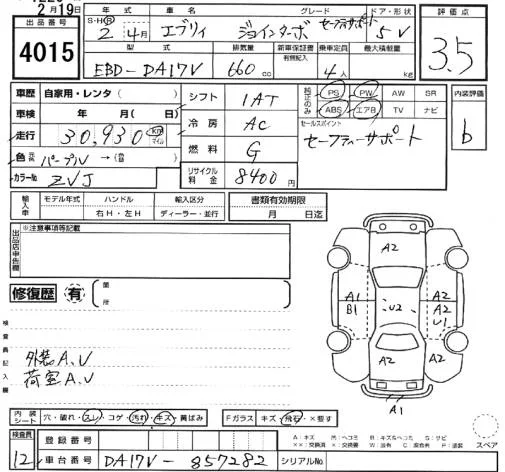 2月19日
出品番号 4015
年式 車名 グレード ドア・形状 評価点
S・H・R 2年4月 エブリィ ジョインターボ セーフティサポート 5V 3.5
型式 排気量 新車保証書 乗車定員 最大積載量
有無記入
EBD-DA17V 660cc 4人 kg
車歴 自家用・レンタ( ) シフト 1AT 純正のみ PS PW AW SR 内装評価
車検 年 月(日) 冷房 AC ABS エアB TV ナビ b
走行 30,930 km マイル 燃料 G セールスポイント
色 元色 パープル→(色替) セーフティーサポート
カラーNo ZVJ リサイクル料金 8400円
輸入車 モデル年式 ハンドル 輸入区分 書類有効期限
右H・左H ディーラー・並行 月 日迄
出品店申告欄 ※注意事項等記載
A2
修復歴 有 箇所
A1 A2
B1 U2 A2
U1
検査員記入欄
外装A.U
荷室A.U
A2 A2
A1
内装シート 穴・破れ・スレ・コゲ・汚れ・キズ・黄ばみ Fガラス キズ・飛石・×要す
A：キズ B：キズ&ヘコミ S：サビ
スペア
検査員 登録番号
12 車台番号 DA17V-857282 シリアルNo